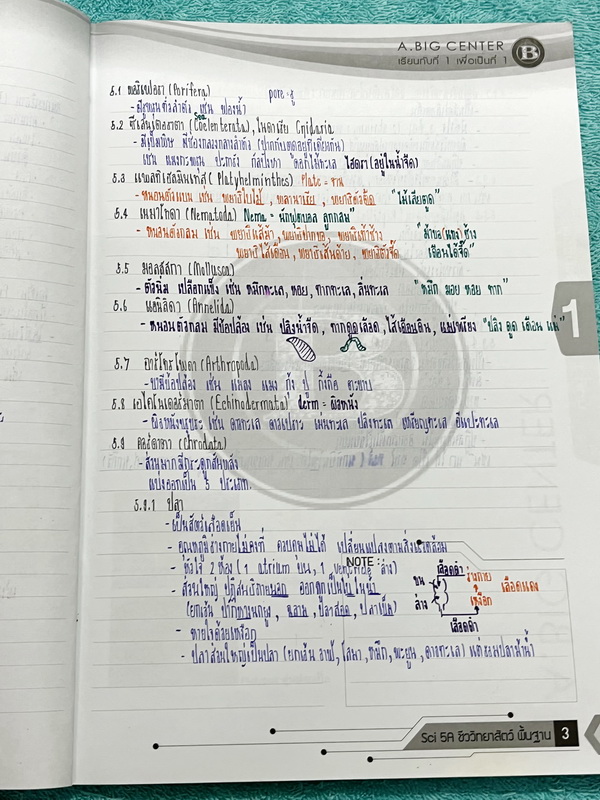 A.BIG CENTER
เรียนทันที่ 1 เพื่อเป็นที่ 1
B
5.1 พอริเฟอรา (Porifera) pore = รู
- มีรูพรุนทั่วลำตัว เช่น ฟองน้ำ
5.2 ซีเลนเตอราตา (Coelenterata), ไนดาเรีย Cnidaria
Sea
- มีเข็มพิษ มีช่องกลวงกลางลำตัว (ปากกับตูดอยู่ที่เดียวกัน)
เช่น แมงกะพรุน ปะการัง กัลปังหา ดอกไม้ทะเล ไฮดรา (อยู่ในน้ำจืด)
5.3 แพลทีเฮลมินเทส (Platyhelminthes) Plate = จาน
- หนอนตัวแบน เช่น พยาธิใบไม้, พลานาเรีย, พยาธิตัวตืด "ไม้เลียตูด"
5.4 เนมาโทดา (Nematoda) Nema = นักฟุตบอล ลูกกลม"
- หนอนตัวกลม เช่น พยาธิแส้ม้า, พยาธิปากขอ, พยาธิเท้าช้าง "ม้าขอ(แทง)ช้าง
พยาธิไส้เดือน, พยาธิเส้นด้าย, พยาธิตัวจี๊ด เดือนได้จี๊ด"
5.5 มอลลัสกา (Mollusca)
- ตัวนิ่ม เปลือกแข็ง เช่น หมึกทะเล, หอย, ทากทะเล, ลิ่นทะเล "หมึก มอย หอย ทาก"
5.6 แอนิลิดา (Annelida)
- หนอนตัวกลม มีข้อปล้อง เช่น ปลิงน้ำจืด, ทากดูดเลือด, ไส้เดือนดิน, แม่เพรียง "ปลิง ดูด เดือน แม่"
1
5.7 อาร์โทรโพดา (Arthropoda)
- ขามีข้อปล้อง เช่น แมลง แมง กุ้ง ปู กิ้งกือ ตะขาบ
5.8 เอไคโนเดอร์มาตา (Echinodermata) derm = ผิวหนัง
- ผิวหนังขรุขระ เช่น ดาวทะเล ดาวเปราะ เม่นทะเล ปลิงทะเล เหรียญทะเล อีแปะทะเล
5.9 คอร์ดาตา (Chrodata)
- ส่วนมากมีกระดูกสันหลัง
แบ่งออกเป็น 5 ประเภท
5.9.1 ปลา
- เป็นสัตว์เลือดเย็น
- อุณหภูมิร่างกายไม่คงที่ ควบคุมไม่ได้ เปลี่ยนแปลงตามสิ่งแวดล้อม
- หัวใจ 2 ห้อง (1 atrium บน, 1 ventricle ล่าง)
- ส่วนใหญ่ ปฏิสนธิภายนอก ออกลูกเป็นไข่ในน้ำ
(ยกเว้น ปลาหางนกยูง, ฉลาม, ปลาสอด, ปลาเข็ม)
- หายใจด้วยเหงือก
- ปลาส่วนใหญ่เป็นปลา (ยกเว้น วาฬ, โลมา, หมึก, พะยูน, ดาวทะเล) แต่รวมปลาม้าน้ำ
NOTE :
เลือดดำ ร่างกาย
บน
ล่าง
เหงือก
เลือดแดง
เลือดดำ
Sci 5A ชีววิทยาสัตว์ พื้นฐาน 3